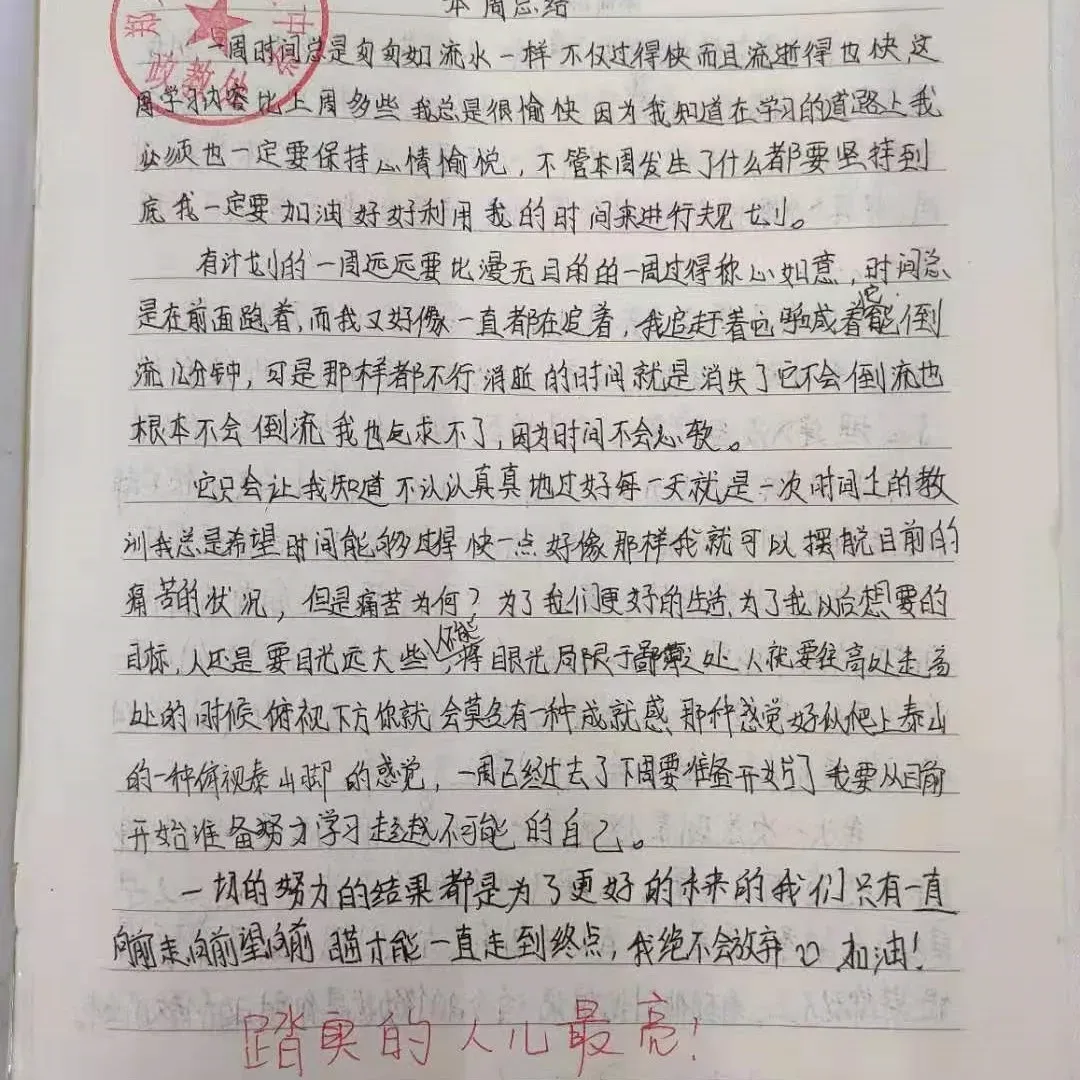 本周总结
政教处
一周时间总是匆匆如流水一样不仅过得快而且流逝得也快,这
周学习内容比上周多些我总是很愉快因为我知道在学习的道路上我
必须也一定要保持心情愉悦,不管本周发生了什么都要坚持到
底我一定要加油好好利用我的时间来进行规划。
有计划的一周远远要比漫无目的的一周过得称心如意,时间总
是在前面跑着,而我又好像一直都在追着,我追赶着它 着它能倒
流几分钟,可是那样都不行消逝的时间就是消失了它不会倒流也
根本不会倒流我也乞求不了,因为时间不会心软。
它只会让我知道不认认真真地过好每一天就是一次时间上的教
训我总是希望时间能够过得快一点好像那样我就可以摆脱目前的
痛苦的状况,但是痛苦为何?为了我们更好的生活,为了我以后想要的
目标,人还是要目光远大些不能将眼光局限于 之处人就要往高处走高
处的时候俯视下方你就会莫名有一种成就感那种感觉好似爬上泰山
的一种俯视泰山脚的感觉,一周已经过去了下周要准备开始了我要从目前
开始准备努力学习超越不可能的自己。
一切的努力的结果都是为了更好的未来的我们只有一直
向前走向前望向前 才能一直走到终点,我绝不会放弃 加油!
踏实的人儿最亮!